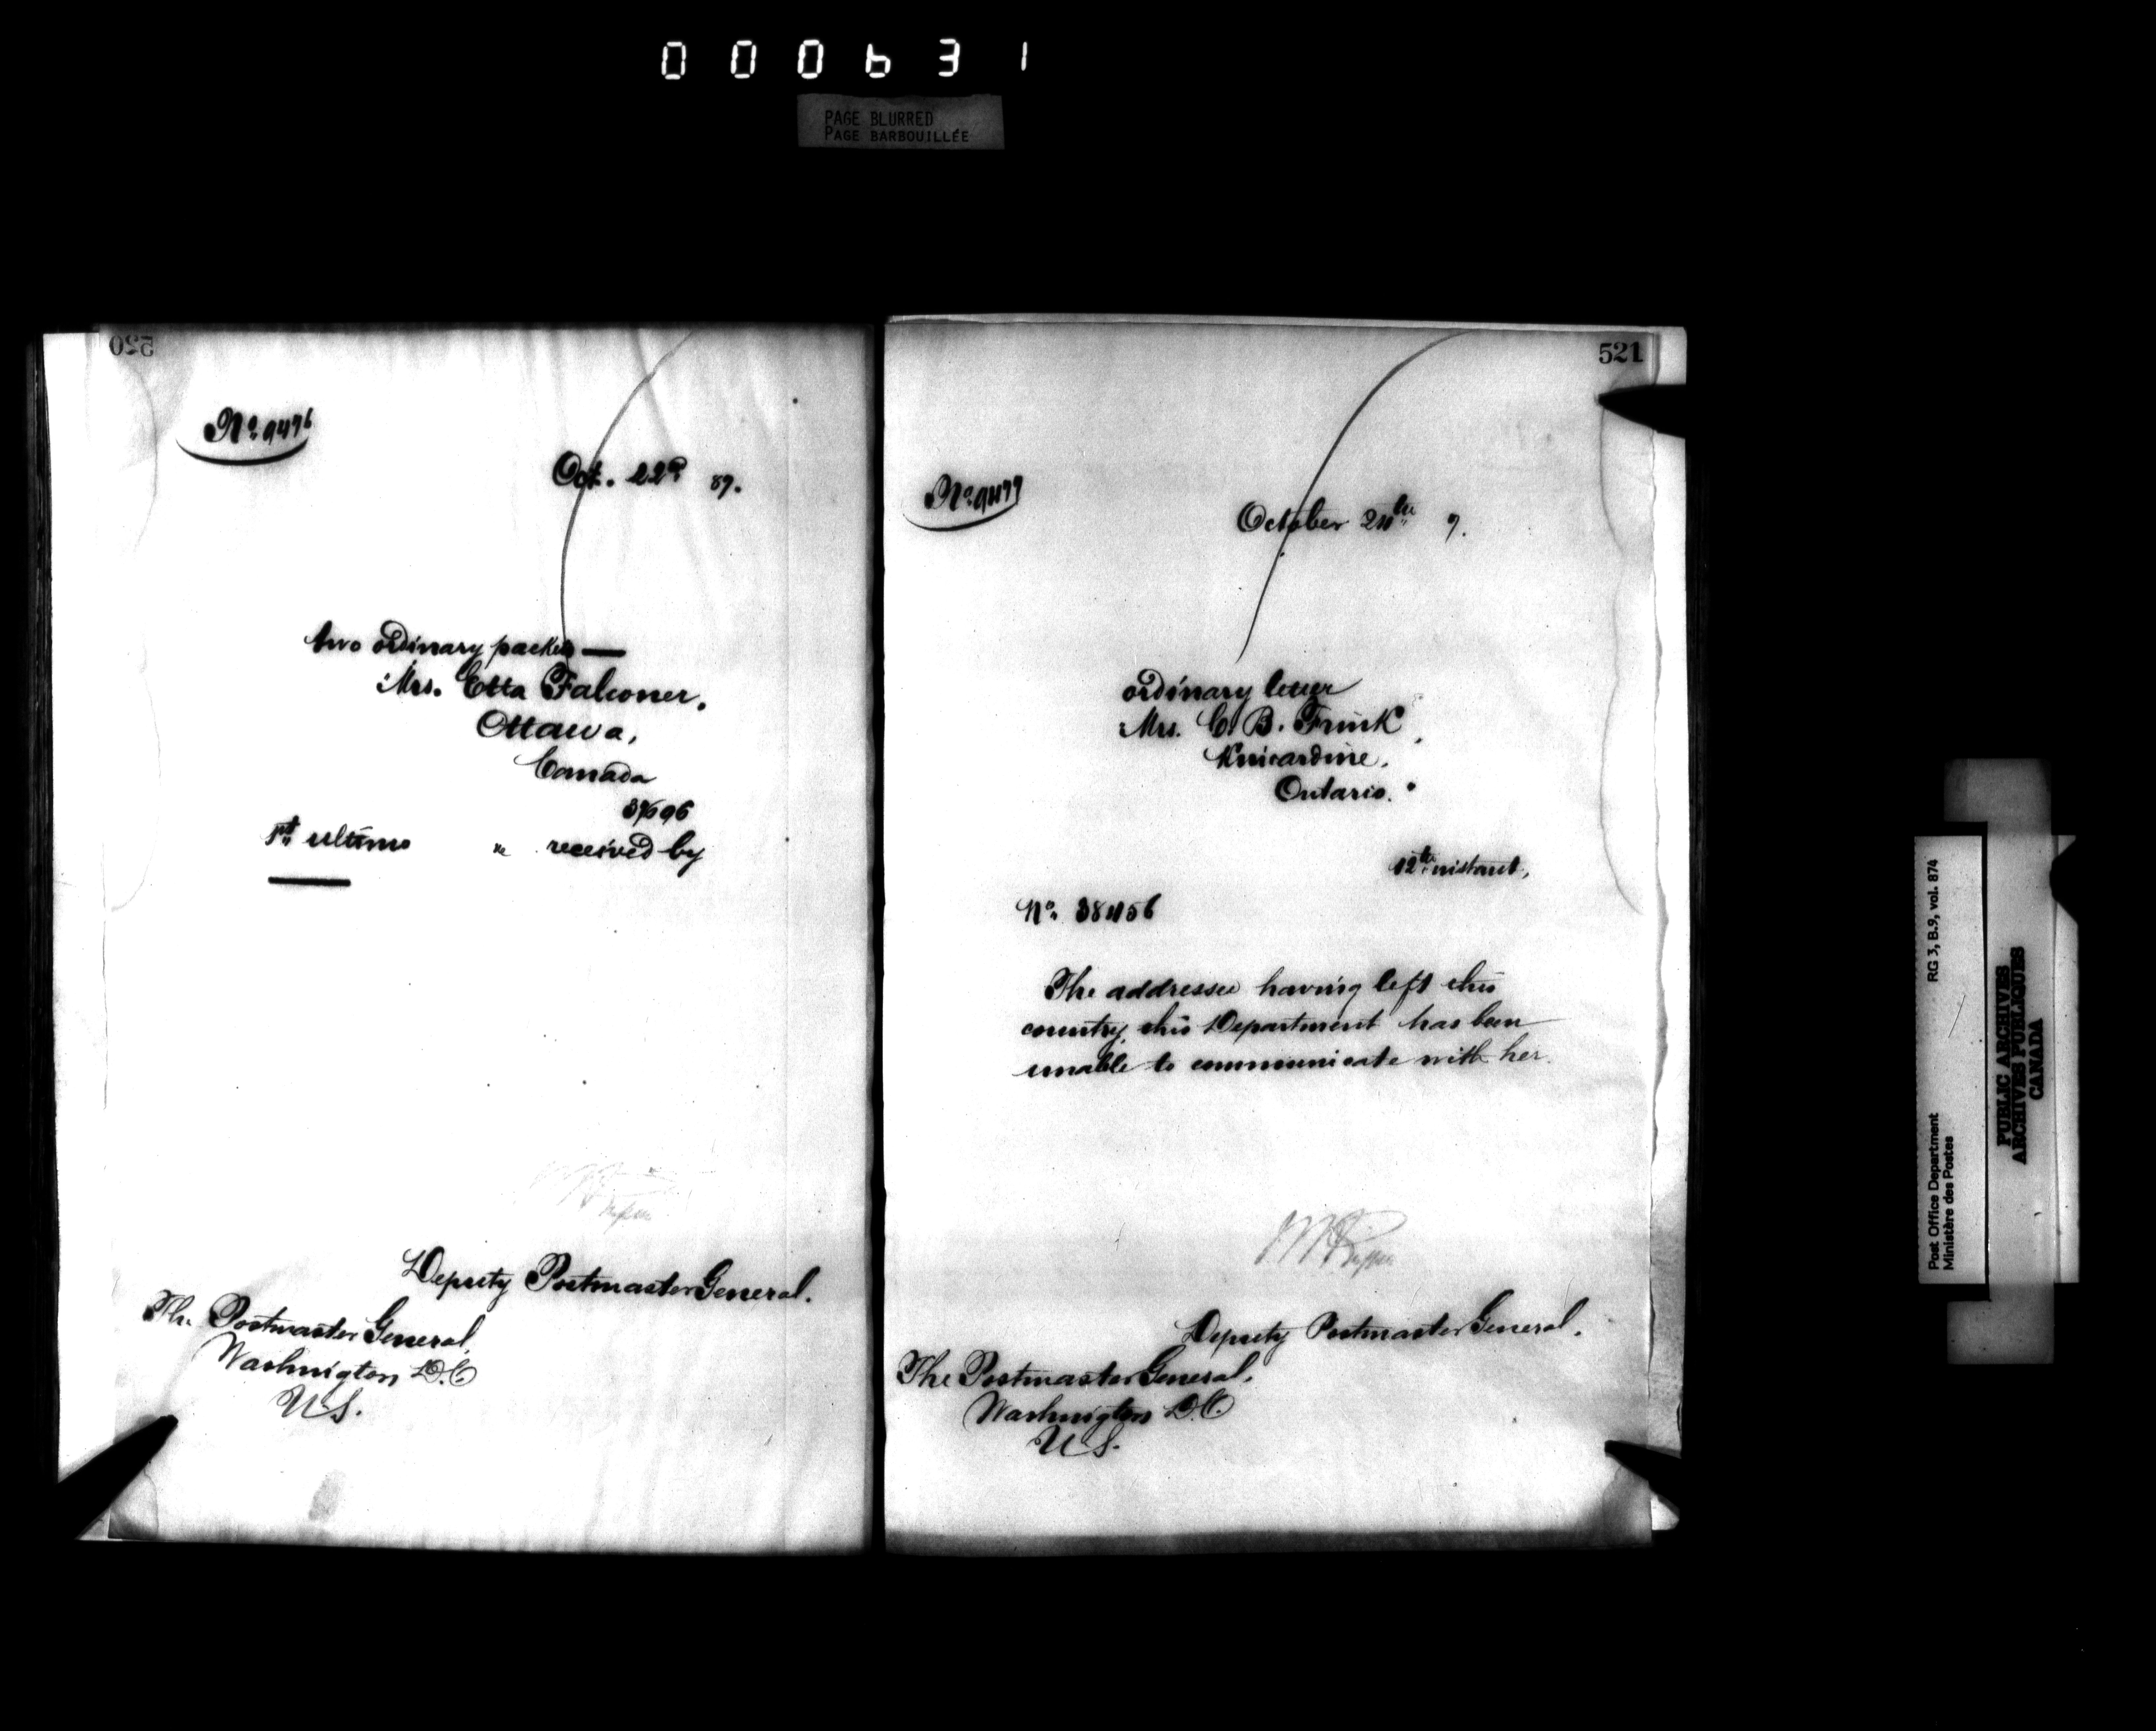 000631
PAGE BLURRED
PAGE BARBOUILLÉE
520
No. 9476
Oct. 22d 87.
two ordinary packets —
Mrs. Etta Falconer.
Ottawa,
Canada
ultimo received by
Deputy Postmaster General.
The Postmaster General,
Washington D.C
U.S.
521
No. 9477
October 24th 7.
ordinary letter
Mrs. C. B. Frink,
Knicardine,
Ontario.
12th instant,
No. 38456
The addressee having left this
country, this Department has been
unable to communicate with her.
Deputy Postmaster General.
The Postmaster General,
Washington D.C.
U.S.
Post Office Department RG 3, B.9, vol. 874
Ministère des Postes
PUBLIC ARCHIVES
ARCHIVES PUBLIQUES
CANADA